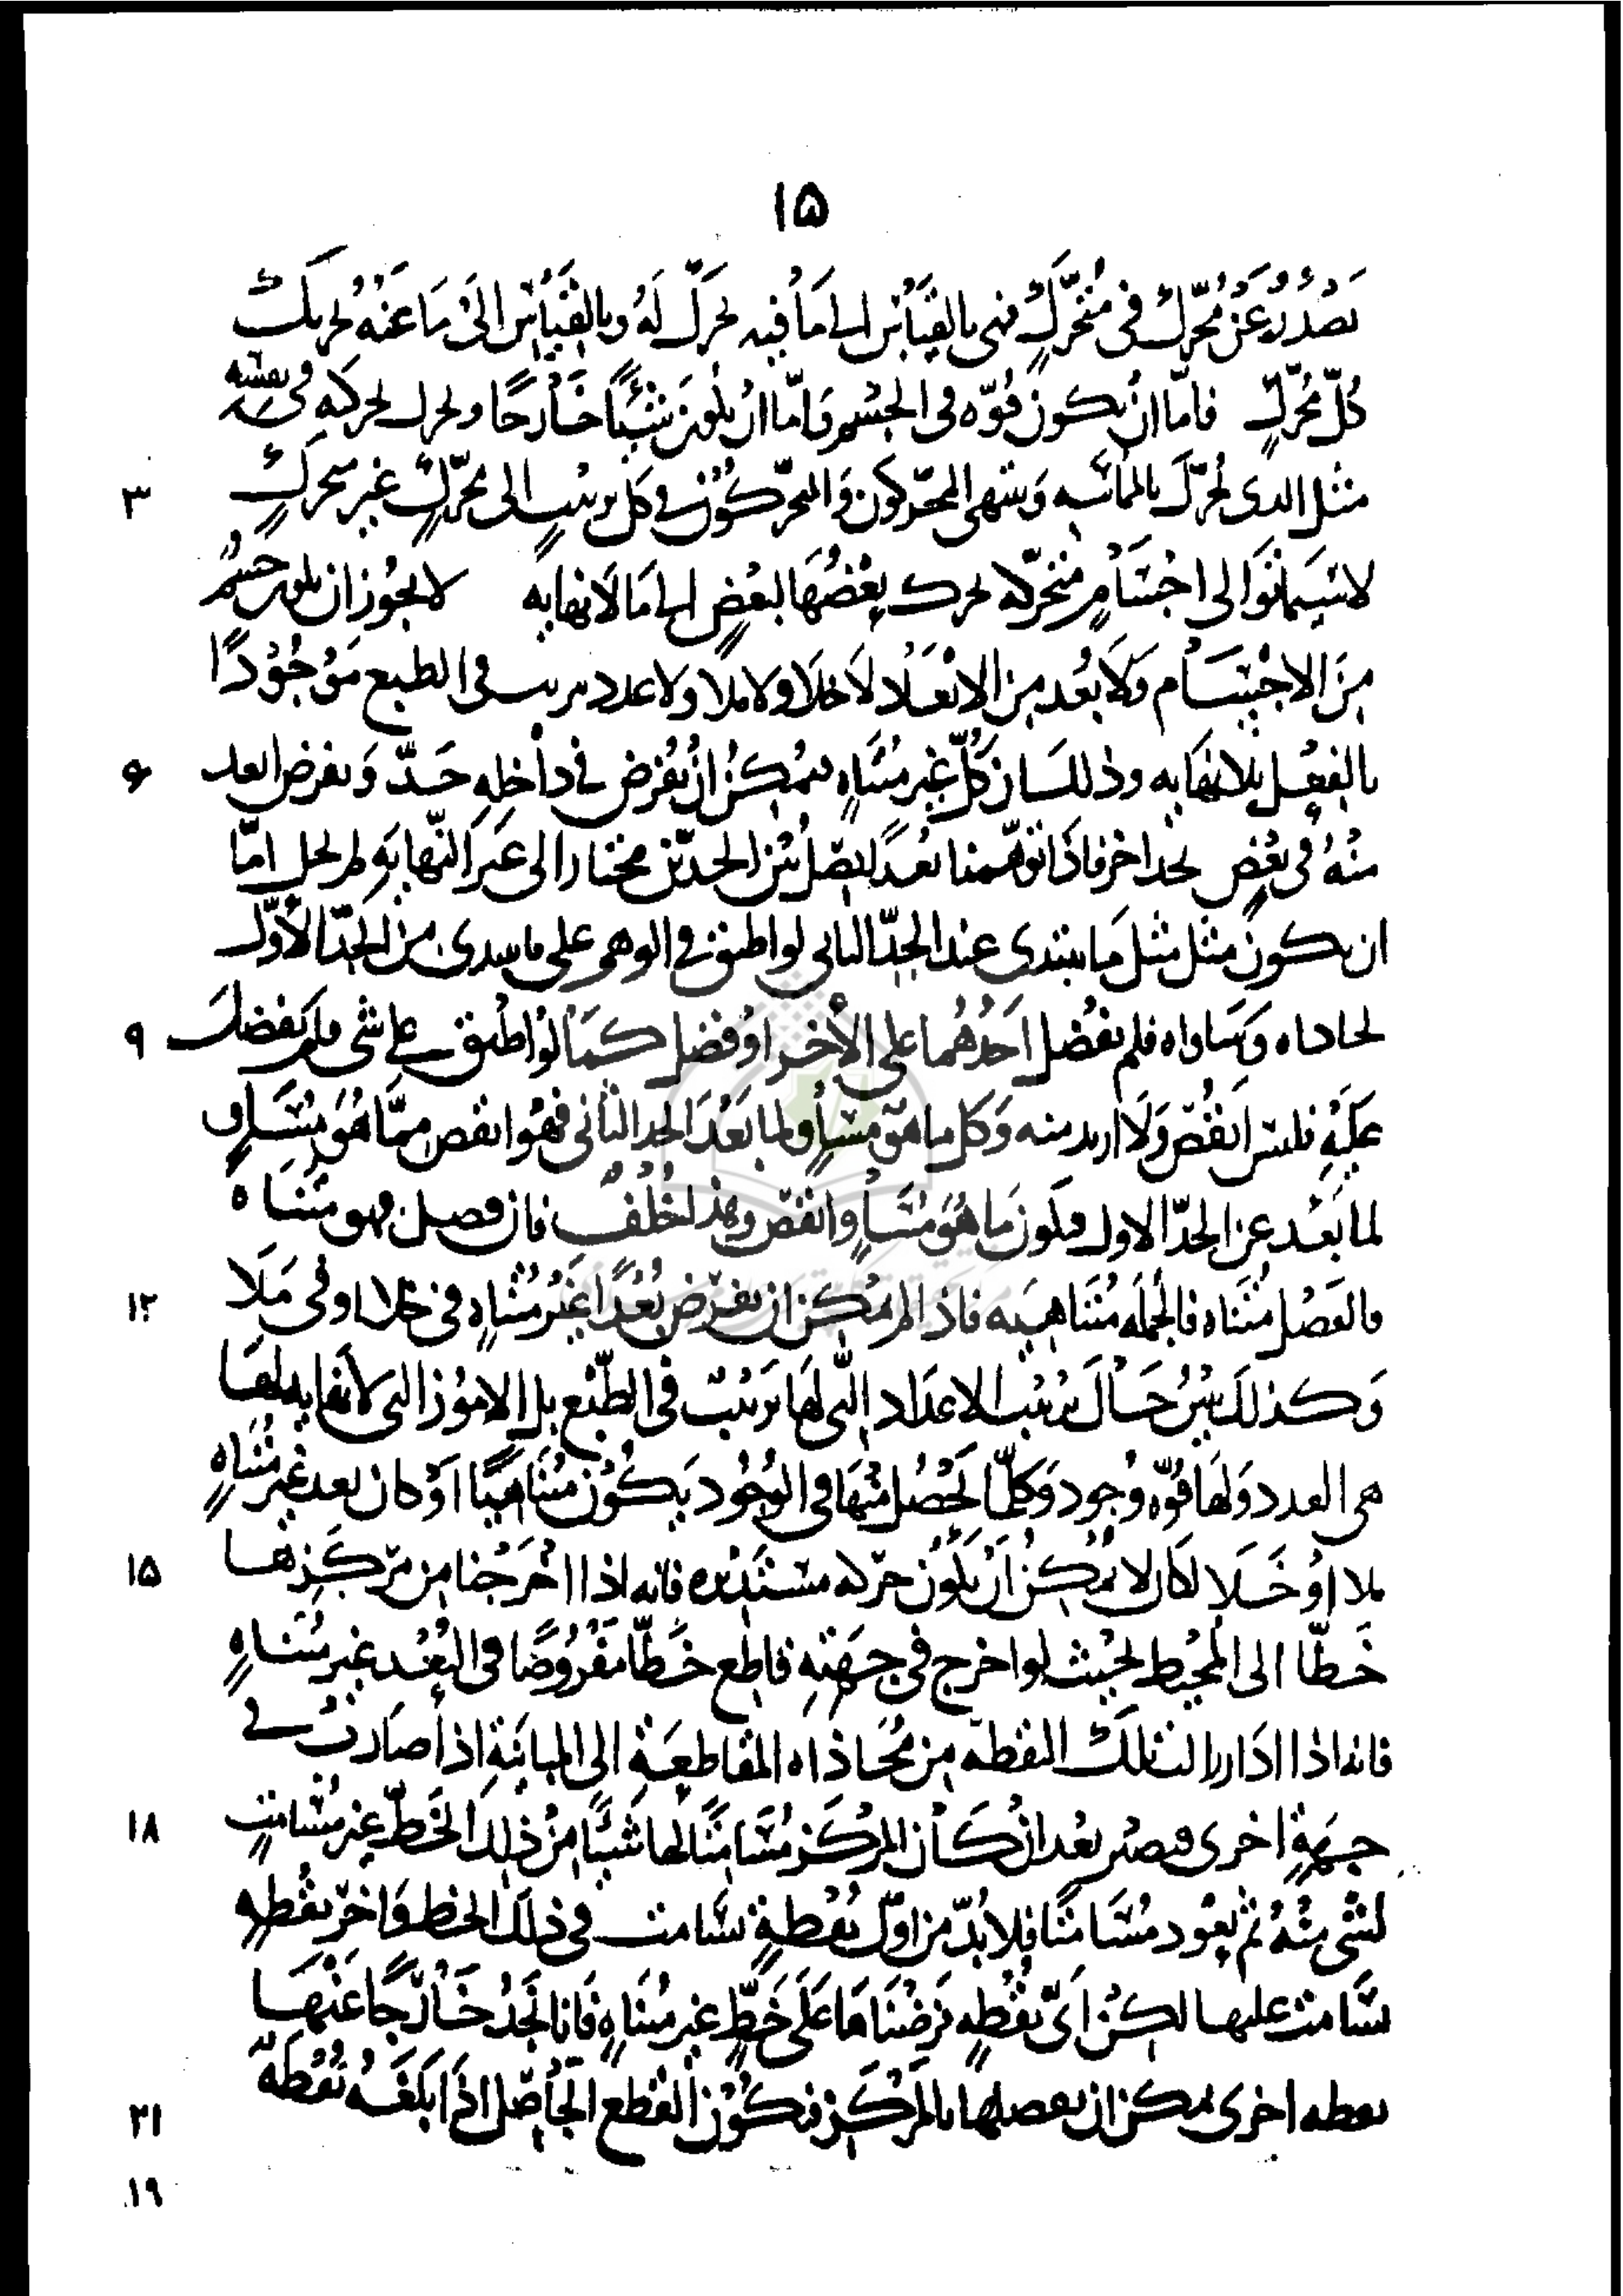 ١۵
تصدر عن محرّك في متحرّك فهى بالقياس الى ما فيه تحرّك له وبالقياس الى ما عنه تحريك
كلّ محرّك فامّا ان يكون قوّه فى الجسم وامّا ان يكون شيئًا خارجًا و تحرك بحركته فى نفسه
٣ مثل الذى يحرّك بالمماسّه وينتهى المحرّكون والمتحرّكون في كل ترتيب الى محرّك غير متحرك
لاستيما توالى اجسام متحرّكه تحرك بعضها لبعض الى ما لا نهايه لا يجوز ان يكون جسم
من الاجسام ولا بُعد من الابعاد لا خلا ولا ملا ولا عدد مرتب فى الطبع موجودًا
۶ بالفعل بلا نهايه وذلك ان كلّ غير متناه يمكن ان يفرض في داخله حدّ ويفرض ابعد
منه فى بعض حدا اخر فاذا توهّمنا بعدًا يصل بين الحدّين مختارا الى غير النهايه لم يخل امّا
ان يكون مثل مثل ما يبتدى عند الحدّ الثانى لو اطبق في الوهم على ما يبتدى من الحدّ الأوّل
٩ لحاذاه وساواه فلم يفضل احدهما على الأخر او فضل كما لو اطبق على شى ولم يفضل
عليه فليس انقص ولا ازيد منه وكل ما هو مساوٍ لما بعد الحد الثانى فهو انقص ممّا هو مساوٍ
لما بعد عن الحدّ الاول فيكون ما هو مساوٍ انقص وهذا خلف فان فصل فهو متناه
١٢ والفصل متناه فالجمله متناهيه فاذا لم يمكن ان يفرض بعدًا غير متناهٍ فى خلا او فى ملا
وكذلك بين حال ترتيب الاعداد التى لها ترتيب فى الطبع بل الامور التى لا نهايه لها
هى العدد ولها قوّه وجود وكلّ ما يحصل منها فى الوجود يكون متناهيًا او كان بعد غير متناهٍ
١۵ ملا او خلا لكان لا يمكن ان يكون حركه مستديره فانه اذا اخرجنا من مركزها
خطّا الى المحيط بحيث لو اخرج فى جهته قاطع خطّا مفروضًا فى البُعد غير متناهٍ
فانه اذا ادار زالت تلك النقطه من محاذاه المقاطعة الى المباينة اذا صارت في
١٨ جهةٍ اخرى فيصير بعد ان كان المركز مسامتًا لها شيئًا من ذلك الخطّ غير مسامتٍ
لشى منه ثم يعود مسامتًا فلا بدّ من اوّل نقطةٍ تسامت فى ذلك الخط واخر نقطه
تسامت عليها لكن اىّ نقطه فرضناها على خطٍّ غير متناهٍ فانا نجد خارجًا عنها
٢١ نقطه اخرى يمكن ان نصلها بالمركز فيكون القطع الحاصل اذا بلغه نقطه
١٩